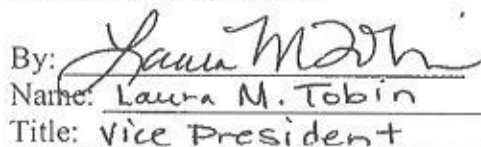 By: Laura M Tobin
Name: Laura M. Tobin
Title: Vice President